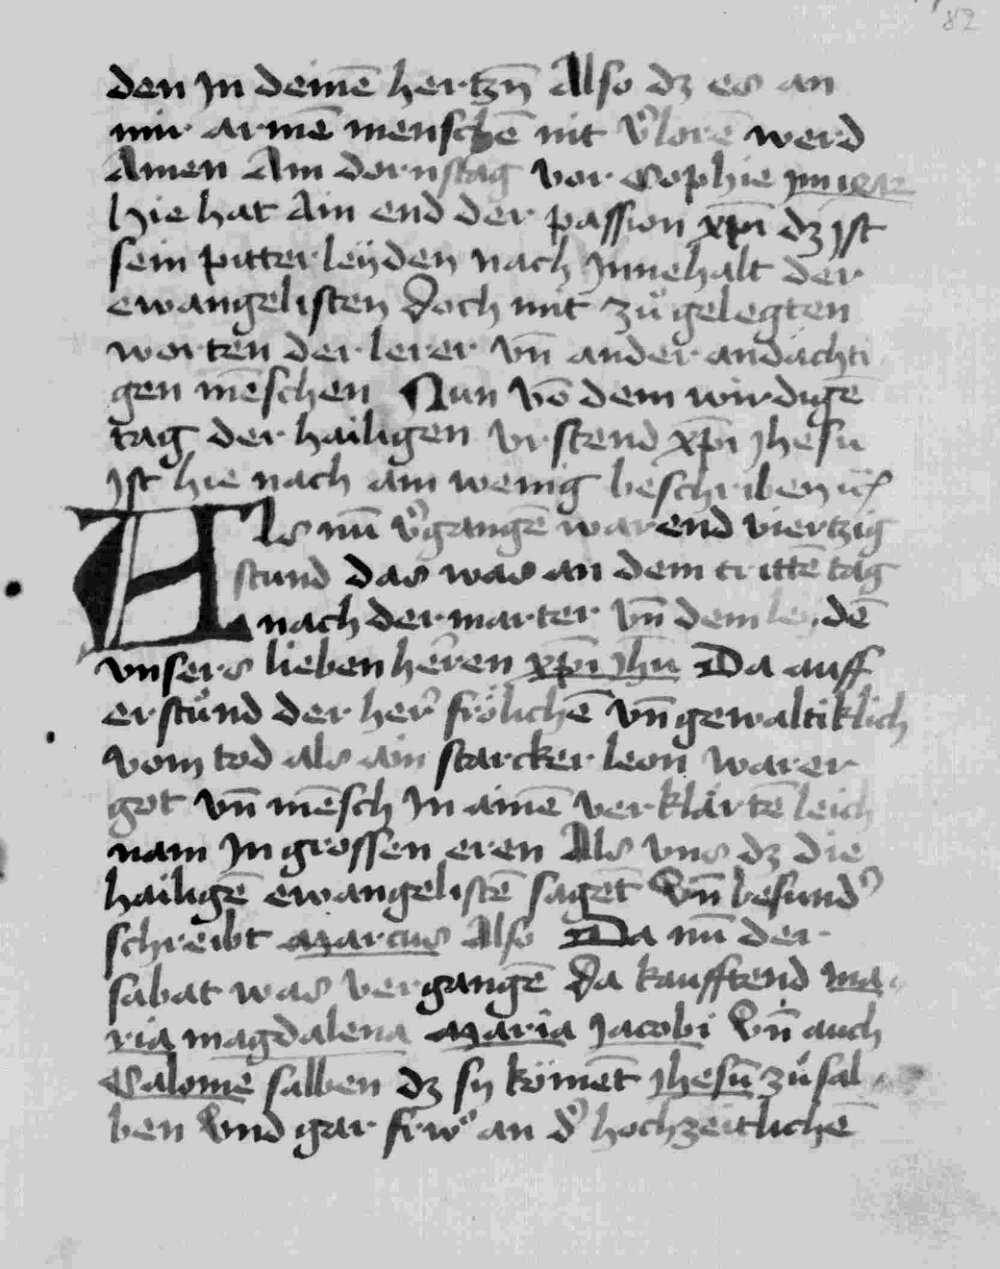 82
den Jn deinē hertzn̄ Also dz es an
mir armē menschē nit v̉lorē werd
Amen Am dornstag vor Sophie
hie hat Ain end der passion xp̄i dz Jst
sein pitter leyden nach Jnnehalt der
ewangelisten Doch mit zů gelegten
worten der lerer vn̄ ander andächti
gen mēschen Nun vō dem wirdigē
tag der hailigen vrstend xp̄i Jhesu
Jst hie nach ain wenig beschriben
Als nū v̉gangē warend viertzig
stund das was an dem trittē tag
nach der marter vn̄ dem leydē
vnsers lieben herren xp̄i Jhū Da auff
erstůnd der her̉ frölichē vn̄ gewaltiklich
vom tod als ain starcker leon warer
got vn̄ mēsch Jn ainē verklärtē leich
nam Jn grossen eren Als vns dz die
hailigē ewangelistē sagēt Vn̄ besund̉
schreibt Marcus Also Da nū der
sabat was vergangē Da kaufftend ma
ria magdalena Maria Jacobi Vn̄ auch
Salome salben dz sy kömēt Jhesū zů sal
ben Vnd gar frw̉ an d̉ hochzeitlichē